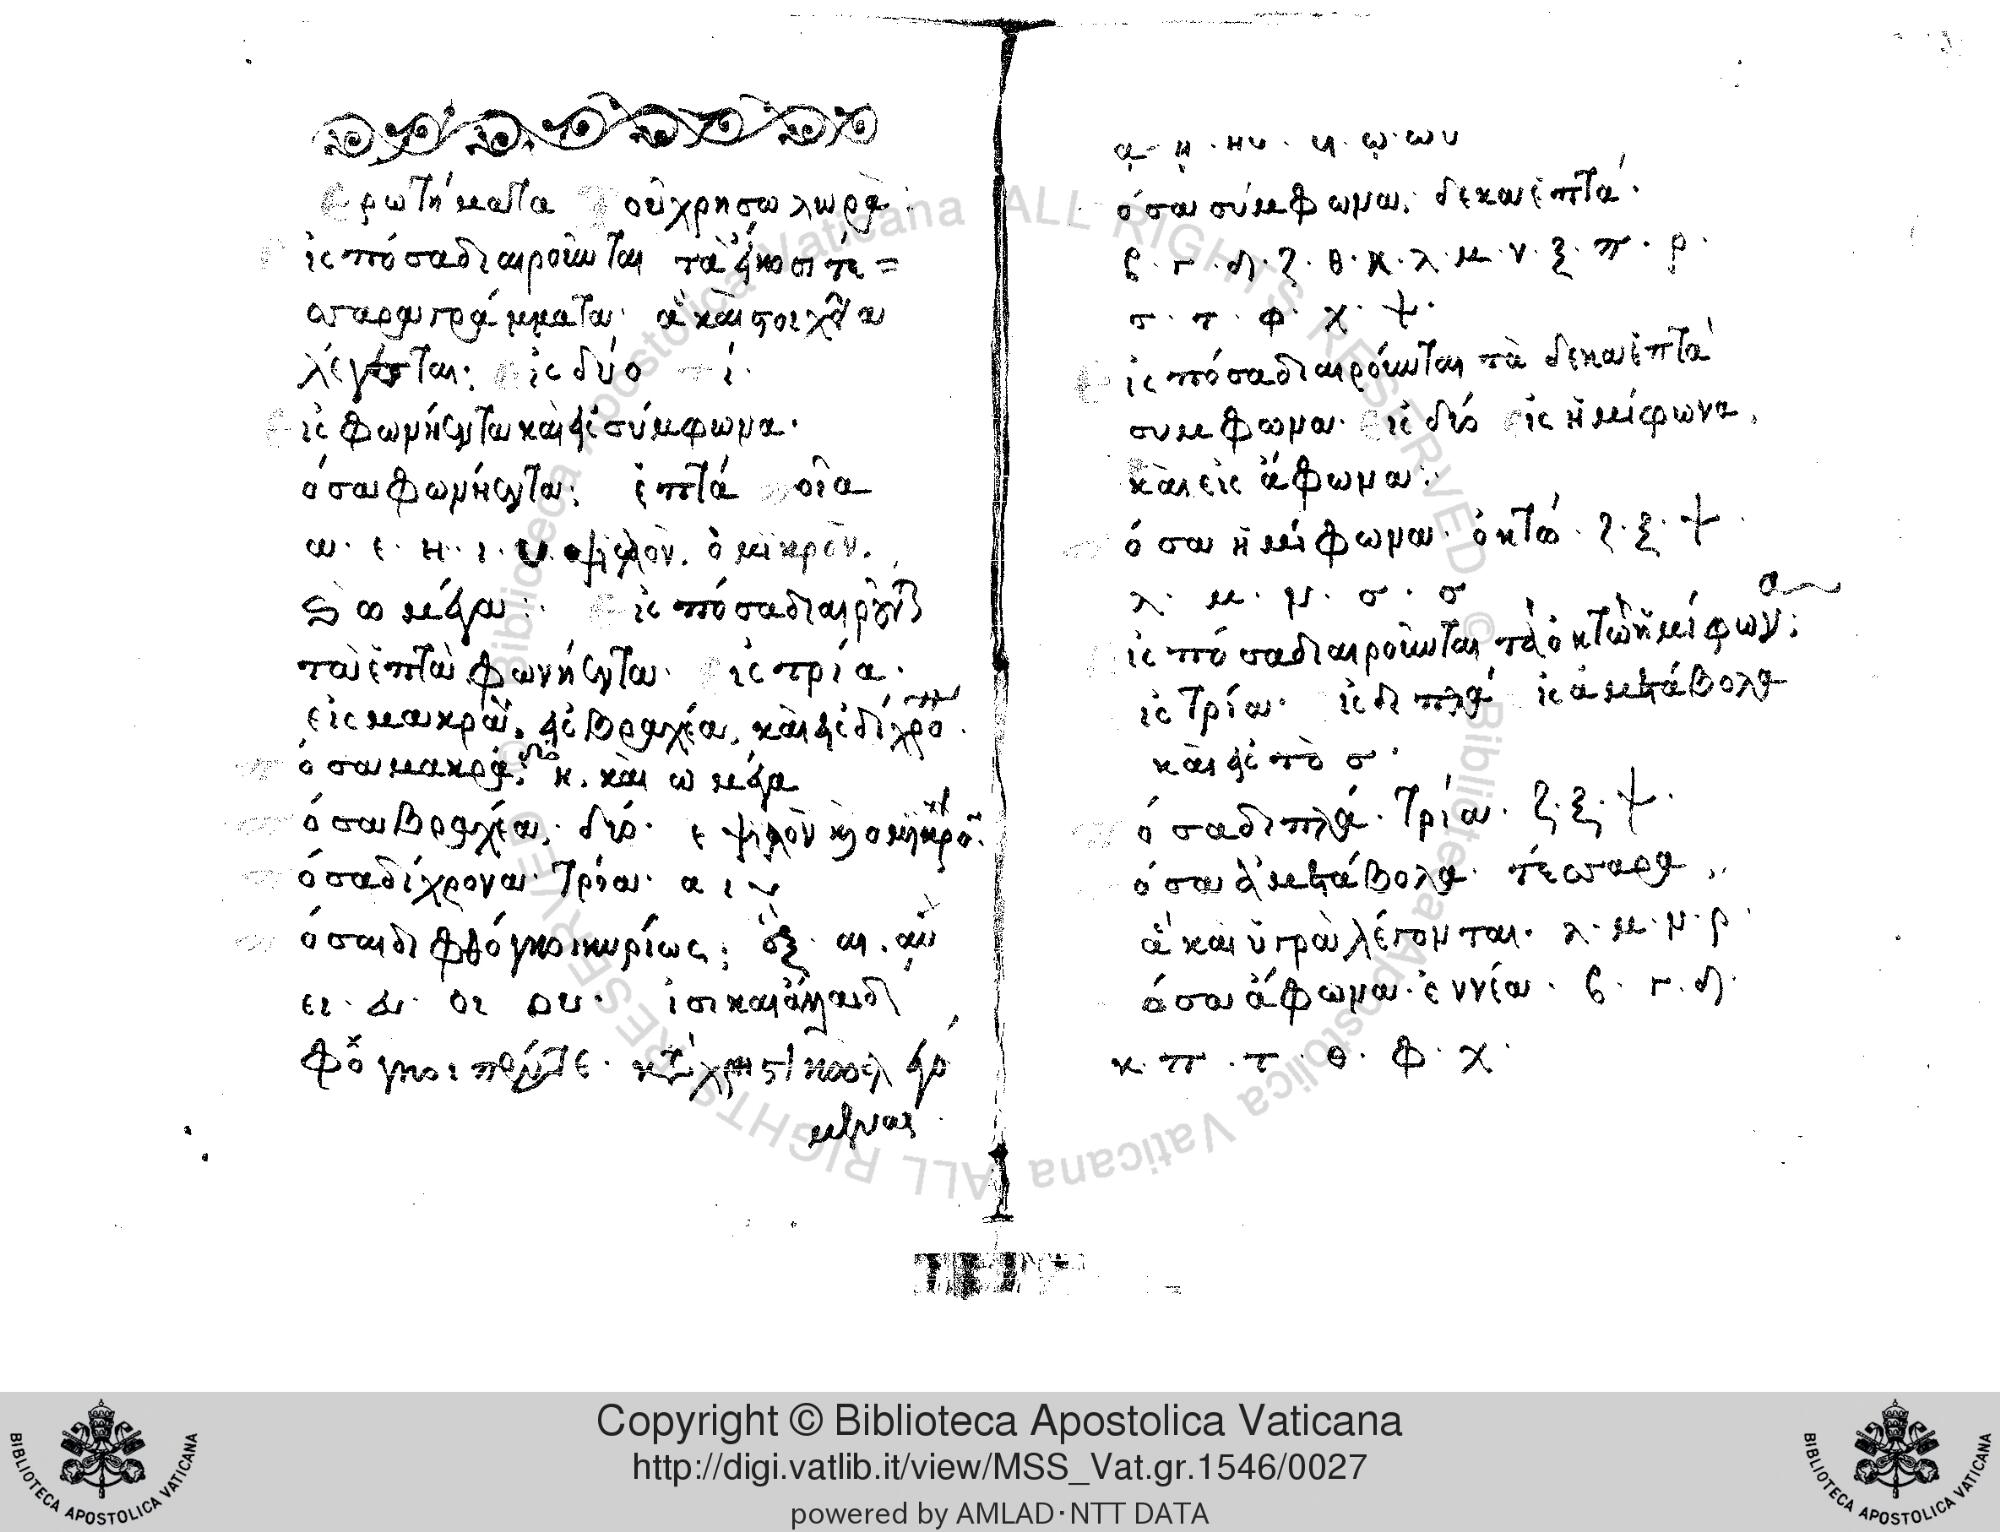 Ἐρωτήματα τοῦ χρυσολωρᾶ
εἰς πόσα διαιροῦνται τὰ εἴκοσι τέσ=
σαρα γράμματα. ἃ καὶ στοιχεῖα
λέγεται; εἰς δύο τί.
εἰς φωνήεντα καὶ εἰς σύμφωνα.
ὅσα φωνήεντα; ἑπτά οἷα
α. ε. η. ι. υ ψιλὸν. ὁ μικρὸν.
ω μέγα. εἰς πόσα διαιροῦντ
τὰ ἑπτὰ φωνήεντα. εἰς τρία.
εἰς μακρὰ. εἰς βραχέα. καὶ εἰς δίχρο
ὅσα μακρά; δύο η. καὶ ω μέγα
ὅσα βραχέα. δύο. ε ψιλὸν
ὅσα δίχρονα. τρία. α ι υ
ὅσαι δίφθογγοι κυρίως; ἕξ. αι. αυ
ει. ευ. οι ου. εἰσὶ καὶ ἄλλαι δι
φθογγοι
ᾳ. ῃ. ηυ. υι. ῳ. ωυ
ὅσα σύμφωνα; δεκαεπτά.
β. γ. δ. ζ. θ. κ. λ. μ. ν. ξ. π. ρ.
σ. τ. φ. χ. ψ.
εἰς πόσα διαιροῦνται τὰ δεκαεπτὰ
συμφωνα. εἰς δύο εἰς ἡμίφωνα.
καὶ εἰς ἄφωνα.
ὅσα ἡμίφωνα. ὀκτώ. ζ. ξ. ψ
λ. μ. ν. σ. σ
εἰς πόσα διαιροῦνται τὰ ὀκτὼ ἡμίφωνα;
εἰς τρία. εἰς διπλᾶ εἰς ἀμετάβολα
καὶ εἰς τὸ σ.
ὅσα διπλά. τρία. ζ. ξ. ψ.
ὅσα ἀμετάβολα. τέσσαρα
ἃ καὶ ὑγρὰ λέγονται. λ. μ. ν. ρ
ὅσα ἄφωνα. ἐννέα. β. γ. δ.
κ. π. τ. θ. φ. χ.
Copyright © Biblioteca Apostolica Vaticana
http://digi.vatlib.it/view/MSS_Vat.gr.1546/0027
powered by AMLAD·NTT DATA
BIBLIOTECA APOSTOLICA VATICANA
BIBLIOTECA APOSTOLICA VATICANA